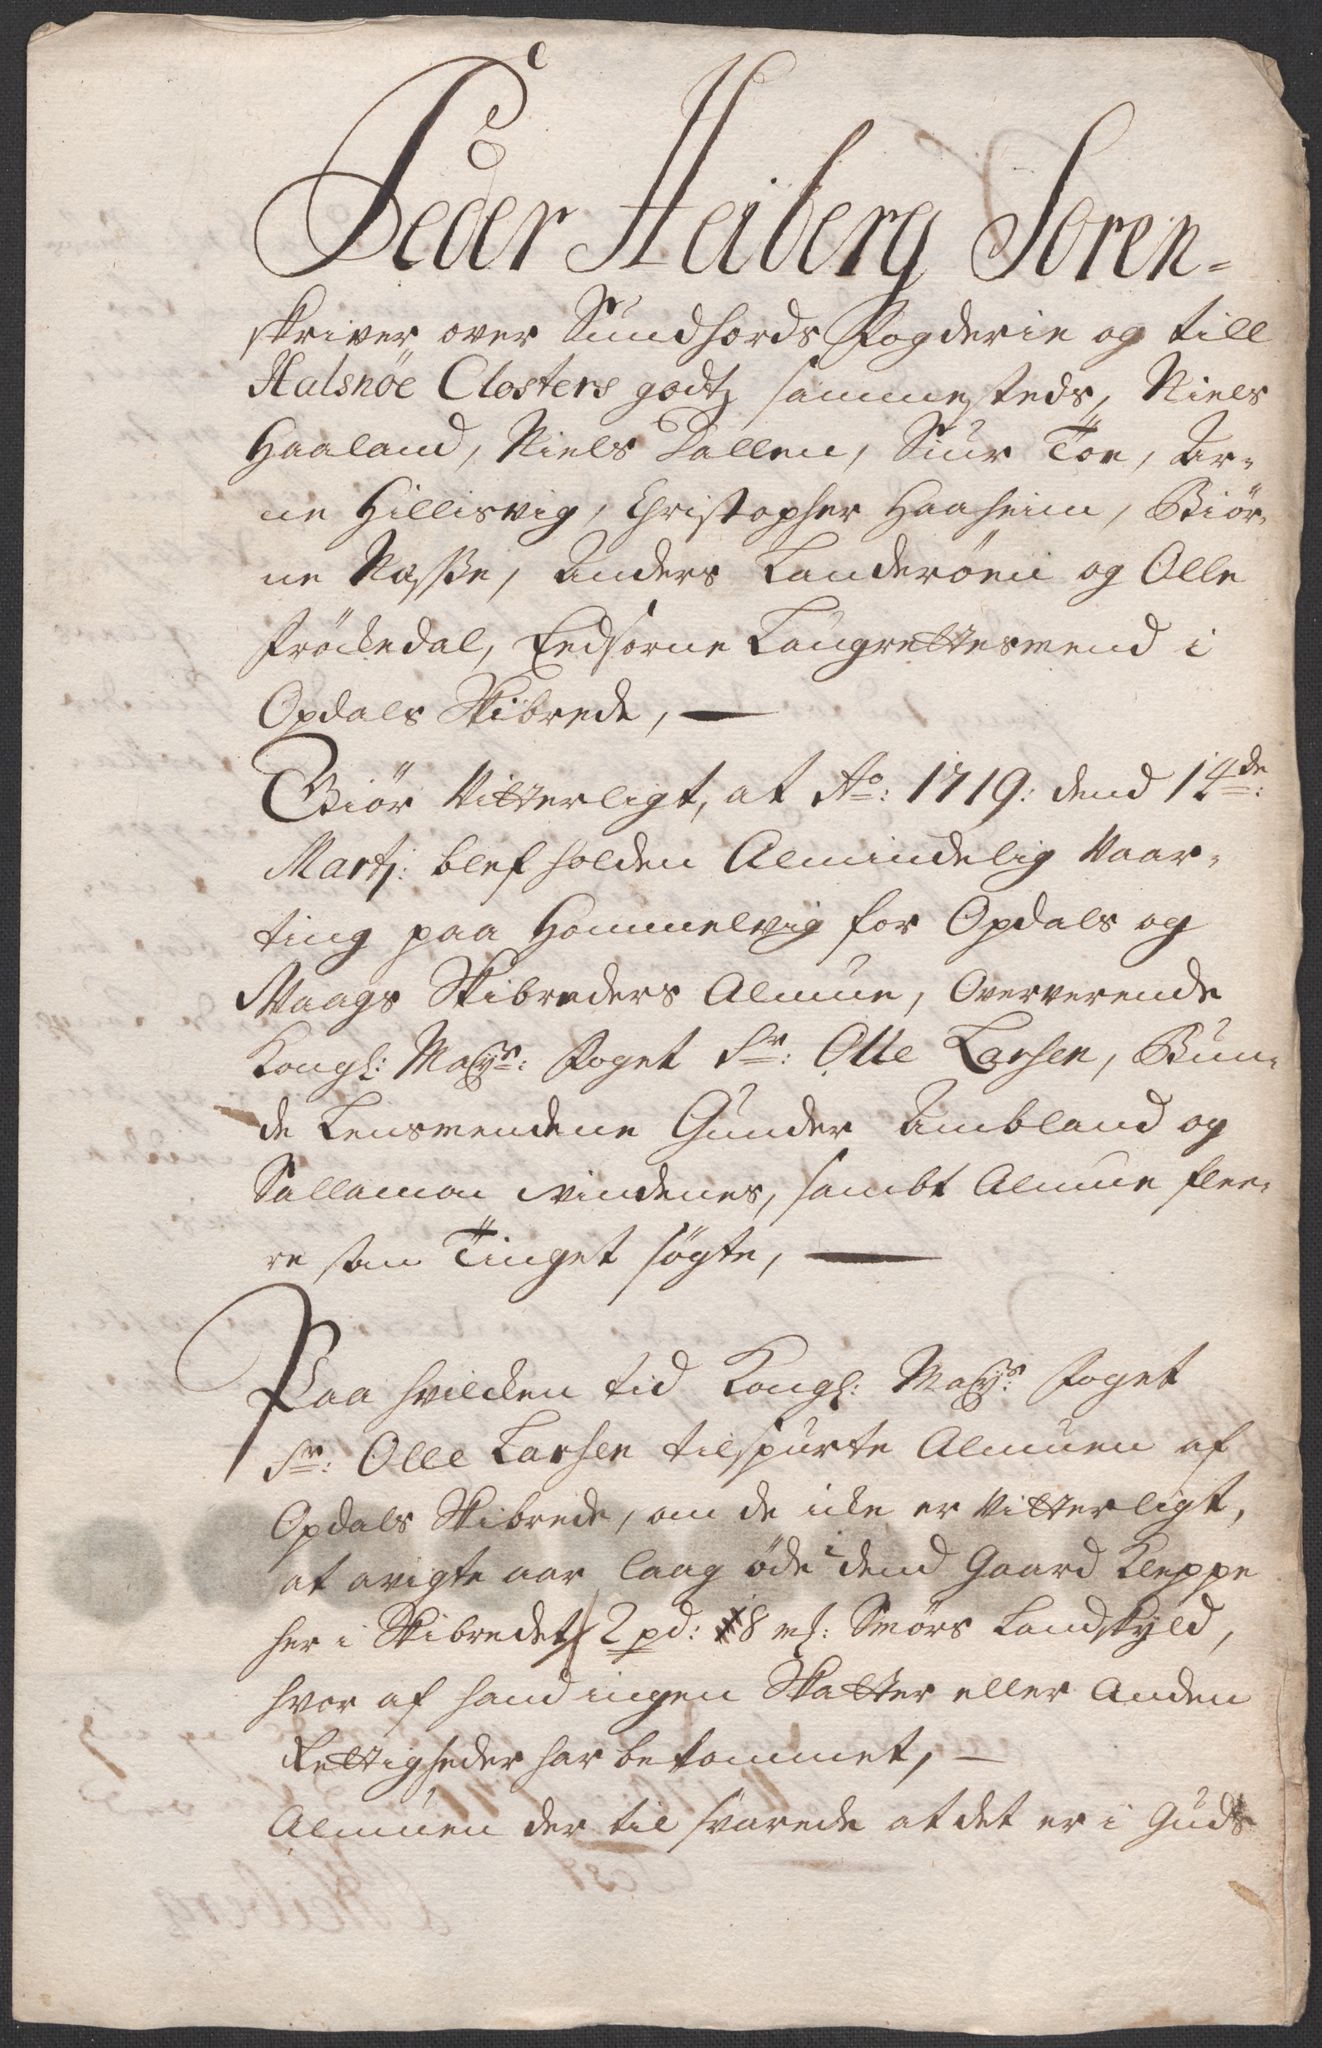 Peder Heiberg Soren-
skriver over Sundhords Fogderie og till
Halsnöe Closters godtz sammesteds, Niels
Haaland, Niels Dallen, Siur Töe, Ar-
ne Hillisvig, Christopher Haaheim, Biör-
ne Næsse, Anders Landeröen og Olle
Fröchedal, Eedsorne Laugrettesmend i
Opdals Skibrede,
Giör Vitterligt, at Ao: 1719: dend 14de:
Martj: blef holden Almindelig Vaar-
ting paa Hommelvig for Opdals og
Waags Skibreders Almue, Oververende
Kongl: Mayts: Foget Sr: Olle Larsen, Bun-
de Lensmendene Gunder Ambland og
Sallamon Windenes, sambt Almue flee-
re som Tinget søgte,
Paa hvilcken tid Kongl: Mayts: Foget
Sr: Olle Larsen tilspurte Almuen af
Opdals Skibrede, om de icke er Vitterligt,
at avigte aar laag öde i dend Gaard Kleppe
her i Skibredet 2 pd: 18 mk: Smörs Landskyld,
hvor af hand ingen Skatter eller Anden
Rettigheder har bekommet,
Almuen der til svarede at det er i Guds